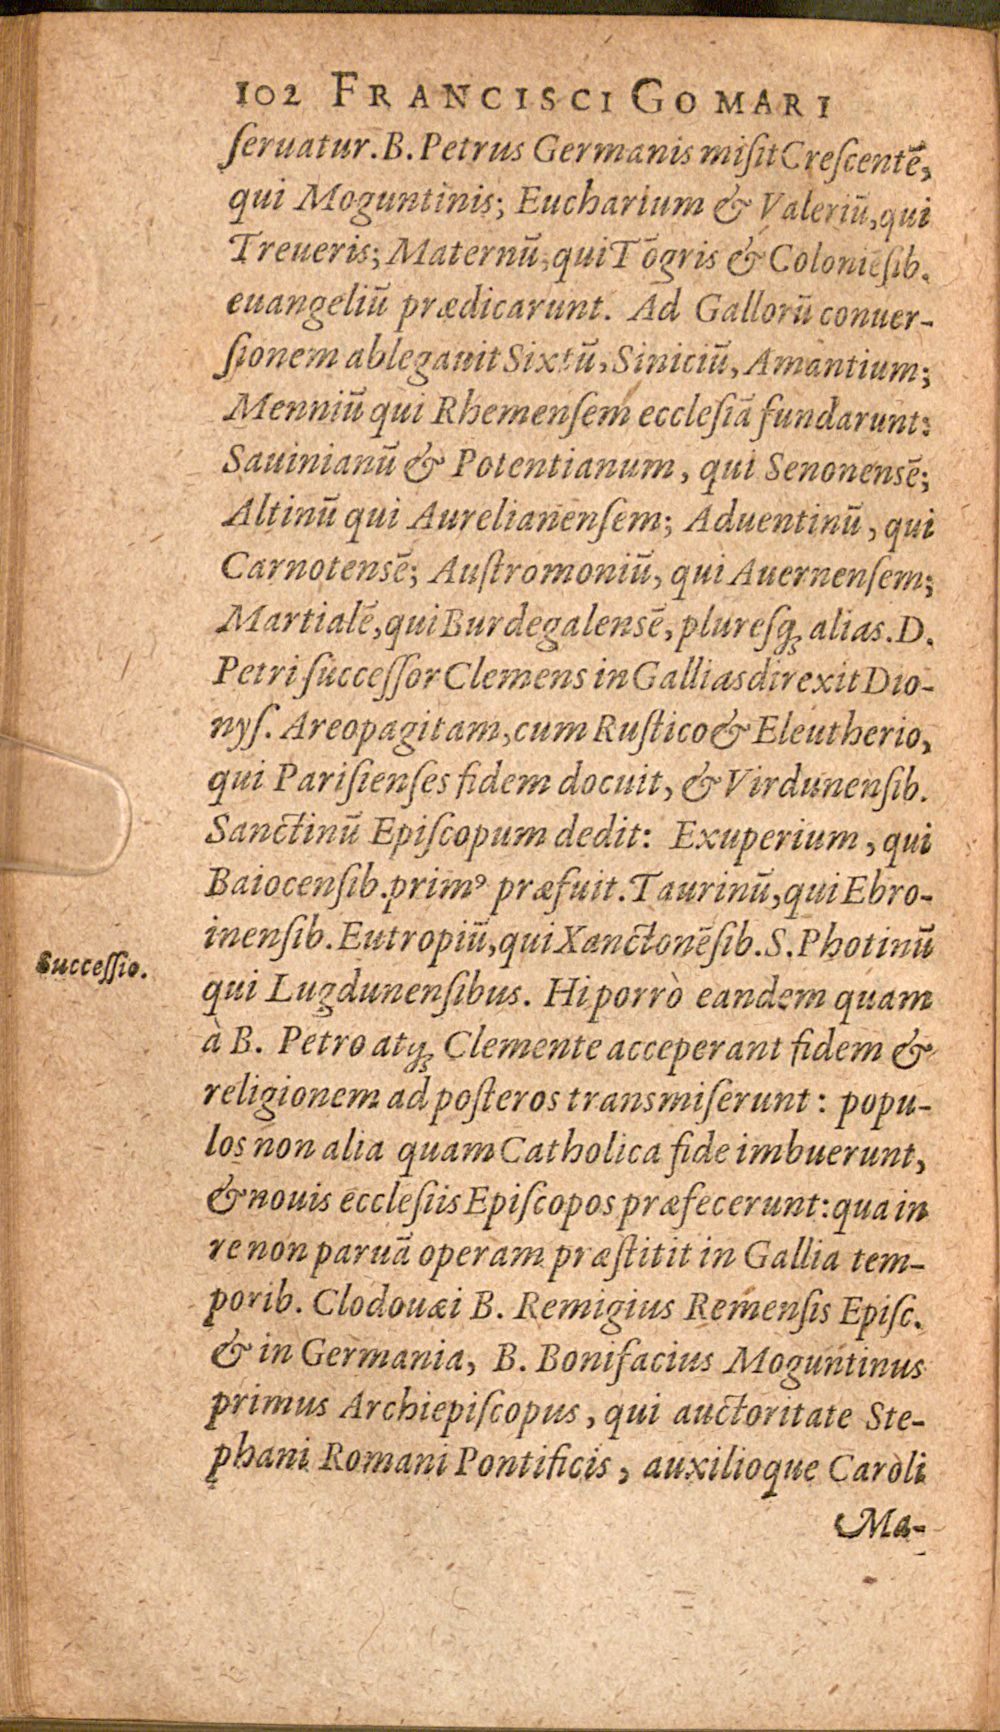 102 FRANCISCI GOMARI
ſeruatur. B. Petrus Germanis miſit Creſcentē,
qui Moguntinis; Eucharium & Valeriū, qui
Treueris; Maternū, qui Tōgris & Coloniēſib.
euangeliū prædicarunt. Ad Gallorū conuer-
ſionem ablegauit Sixtū, Siniciū, Amantium;
Menniū qui Rhemenſem eccleſiā fundarunt:
Sauinianū & Potentianum, qui Senonensē;
Altinū qui Aurelianenſem; Aduentinū, qui
Carnotensē; Auſtromoniū, qui Auernenſem;
Martialē, qui Burdegalensē, pluresq; alias. D.
Petri ſucceſſor Clemens in Gallias direxit Dio-
nyſ. Areopagitam, cum Ruſtico & Eleutherio,
qui Pariſienſes fidem docuit, & Virdunenſib.
Sanctinū Epiſcopum dedit: Exuperium, qui
Baiocenſib. primꝰ præfuit. Taurinū, qui Ebro-
inenſib. Eutropiū, qui Xanctonēſib. S. Photinū
Succeſſio.
qui Lugdunenſibus. Hi porrò eandem quam
à B. Petro atq; Clemente acceperant fidem &
religionem ad poſteros transmiſerunt: popu-
los non alia quam Catholica fide imbuerunt,
& nouis eccleſiis Epiſcopos præfecerunt: qua in
re non paruā operam præſtitit in Gallia tem-
porib. Clodouæi B. Remigius Remenſis Epiſc.
& in Germania, B. Bonifacius Moguntinus
primus Archiepiſcopus, qui auctoritate Ste-
phani Romani Pontificis, auxilioque Caroli
Ma-